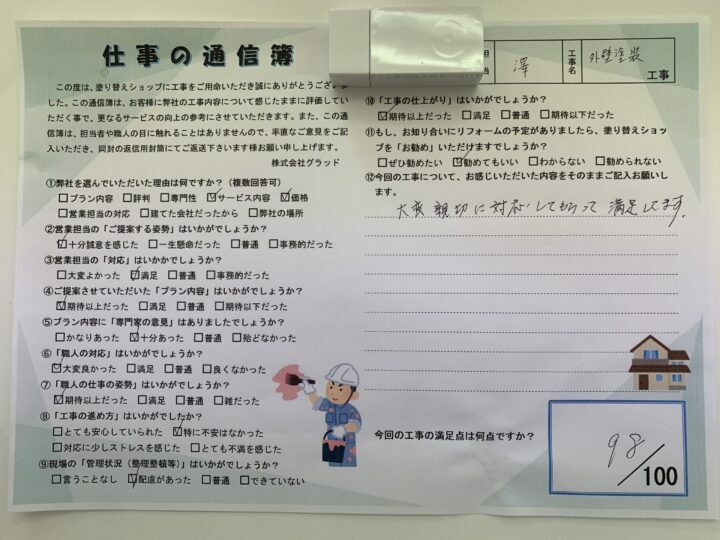 仕事の通信簿
この度は、塗り替えショップに工事をご用命いただき誠にありがとうございま
した。この通信簿は、お客様に弊社の工事内容について感じたままに評価してい
ただく事で、更なるサービスの向上の参考にさせていただきます。また、この通
信簿は、担当者や職人の目に触れることはありませんので、率直なご意見をご記
入いただき、同封の返信用封筒にてご返送下さいます様お願い申し上げます。
株式会社グラッド
①弊社を選んでいただいた理由は何ですか?(複数回答可)
□プラン内容 □評判 □専門性 ☑サービス内容 ☑価格
□営業担当の対応 □建てた会社だったから □弊社の場所
②営業担当の「ご提案する姿勢」はいかがでしょうか?
☑十分誠意を感じた □一生懸命だった □普通 □事務的だった
③営業担当の「対応」はいかかでしょうか?
□大変よかった ☑満足 □普通 □事務的だった
④ご提案させていただいた「プラン内容」はいかがでしょうか?
☑期待以上だった □満足 □普通 □期待以下だった
⑤プラン内容に「専門家の意見」はありましたでしょうか?
□かなりあった ☑十分あった □普通 □殆どなかった
⑥「職人の対応」はいかがでしょうか?
☑大変良かった □満足 □普通 □良くなかった
⑦「職人の仕事の姿勢」はいかがでしょうか?
☑期待以上だった □満足 □普通 □雑だった
⑧「工事の進め方」はいかがでしたか?
□とても安心していられた ☑特に不安はなかった
□対応に少しストレスを感じた □とても不満を感じた
⑨現場の「管理状況(整理整頓等)」はいかがでしょうか?
□言うことなし ☑配慮があった □普通 □できていない
担当 澤 工事名 外壁塗装 工事
⑩「工事の仕上がり」はいかがでしょうか?
☑期待以上だった □満足 □普通 □期待以下だった
⑪もし、お知り合いにリフォームの予定がありましたら、塗り替えショッ
プを「お勧め」いただけますでしょうか?
□ぜひ勧めたい ☑勧めてもいい □わからない □勧められない
⑫今回の工事について、お感じいただいた内容をそのままご記入お願いし
ます。
大変親切に対応してもらって満足してます。
今回の工事の満足点は何点ですか?
98/100